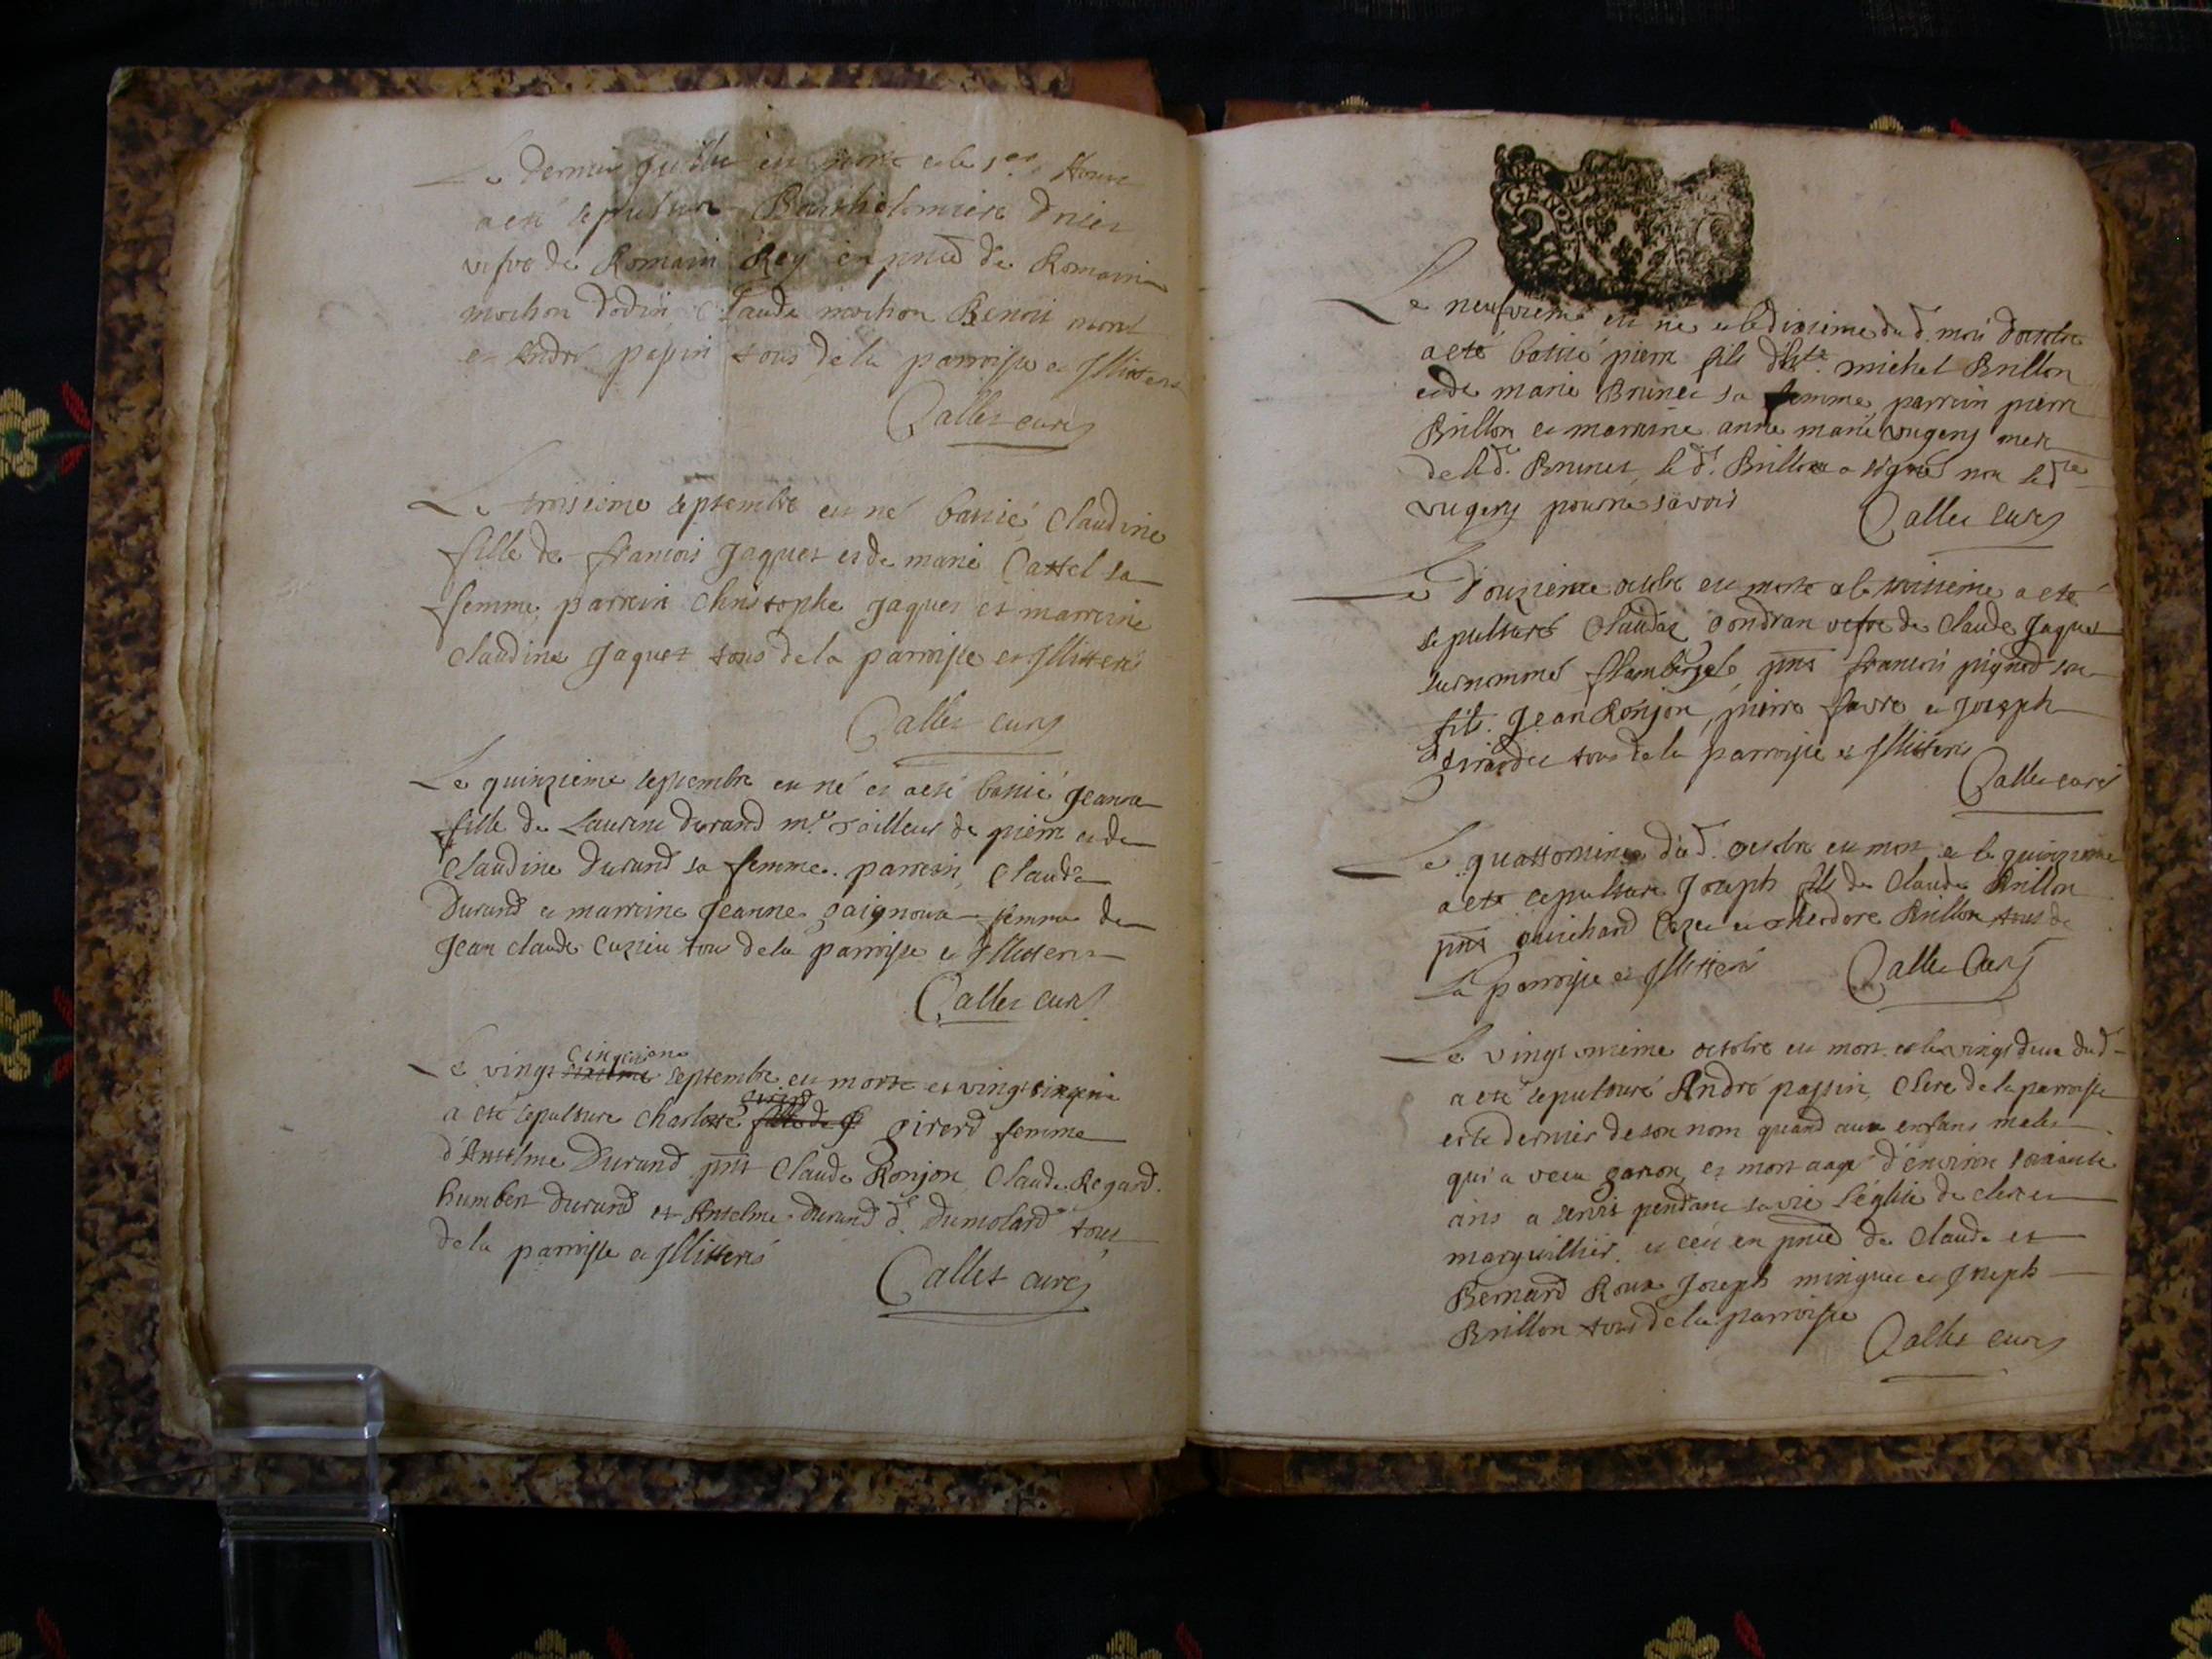 Le dernier Juillet est morte et le 1er Aoust
a esté sepulturé Barthelemiere
vefve de Romain Rey en pnce de Romain
mochon dodin Claude mochon Benoit
et André papin tous de la parroisse et Illitterés
Callet curé
Le troisieme septembre est né batisé Claudine
fille de francois Jaquet et de marie Cattel sa
femme, parrein Christophe Jaquet et marreine
Claudine Jaquet tous de la parroisse et Illitterés
Callet curé
Le quinzieme septembre est né et a esté batisé Jeanne
fille de Laurent durand mre tailleur de pierre et de
Claudine durand sa femme. parrein Claude
durand et marreine Jeanne femme de
Jean claude tous de la parroisse et Illitterés
Callet curé
cinquieme
Le vingt septembre est morte et vingt
girard
a esté sepulture charlotte fille de girard femme
d'Anselme Durand pnts Claude Ronjon Claude Regard
humbert durand et Anselme durand dt dumolard tous
de la parroisse et Illitterés
Callet curé
GENE
Le neufvieme est né et le dixieme dud. mois
a esté batisé pierre fils michel Brillon
et de marie Brunet sa femme, parrein pierre
Brillon et marreine anne marie vugeny mere
de lad. Brunet, led. Brillon a signé non lade
vugeny pour ne savoir
Callet curé
Le douzieme octobre est morte et le treisieme a esté
sepulturé Claudaz gondran vefve de Claude Jaquet
surnommé pnts francois pignod son
fils. Jean Ronjon, pierre favre et Joseph
girardet tous de la parroisse et Illitterés
Callet curé
Le quattorsieme dud. octobre est mort et le quinzieme
a esté sepulturé Joseph fils de Claude Brillon
pnts et theodore Brillon tous de
La parroisse et Illitterés
Callet Curé
Le vingt unieme octobre est mort et le vingt deux dud
a esté sepulturé André passin, Clerc de la parroisse
et le dernier de son nom quand aux enfans males
qui a vecu garcon, et mort aagé d'environ soixante
ans a servit pendant sa vie l'église de clerc et
marguillier. et ceci en pnce de Claude et
Bernard Roux Joseph minguet et Joseph
Brillon tous de la parroisse
Callet curé